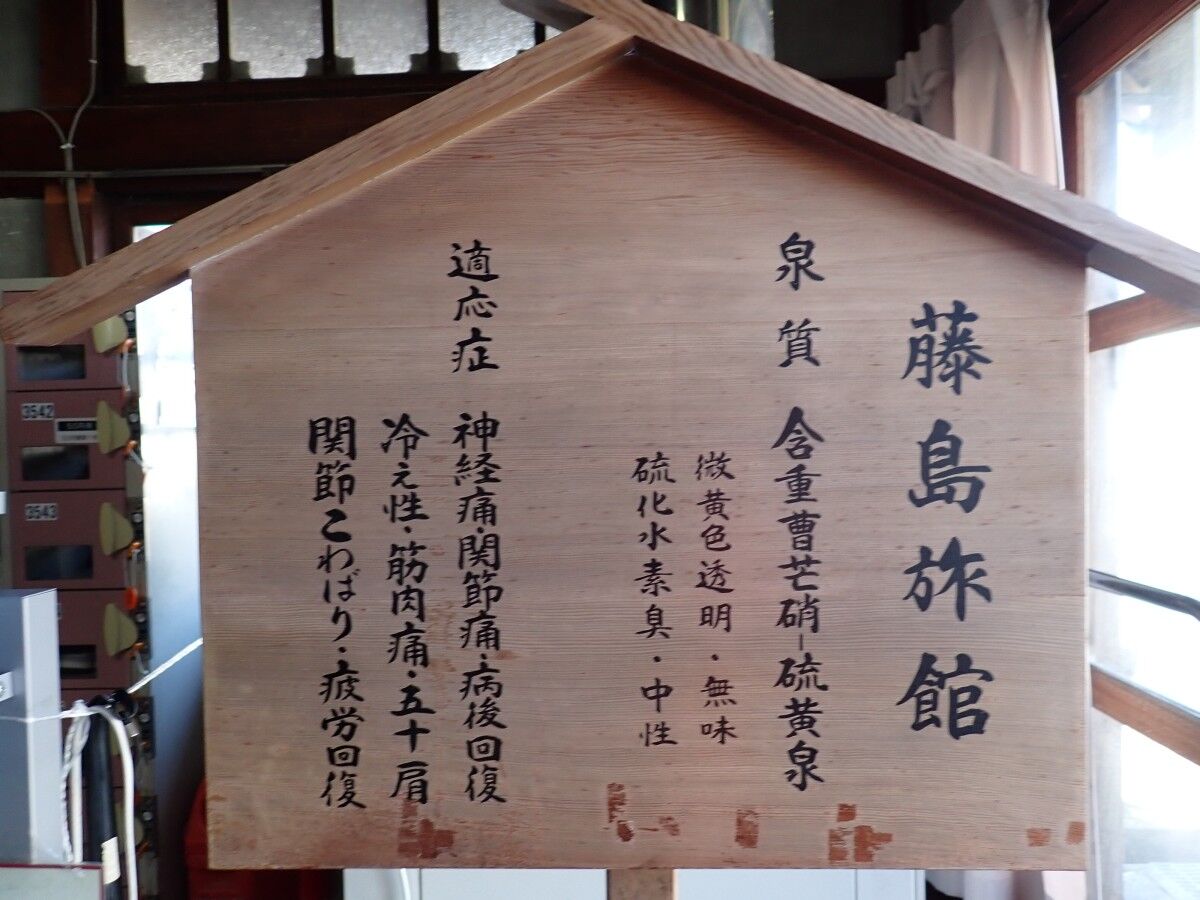 藤島旅館
泉質 含重曹芒硝-硫黄泉
微黄色透明・無味
硫化水素臭・中性
適応症 神経痛・関節痛・病後回復
冷え性・筋肉痛・五十肩
関節こわばり・疲労回復
3542
3543